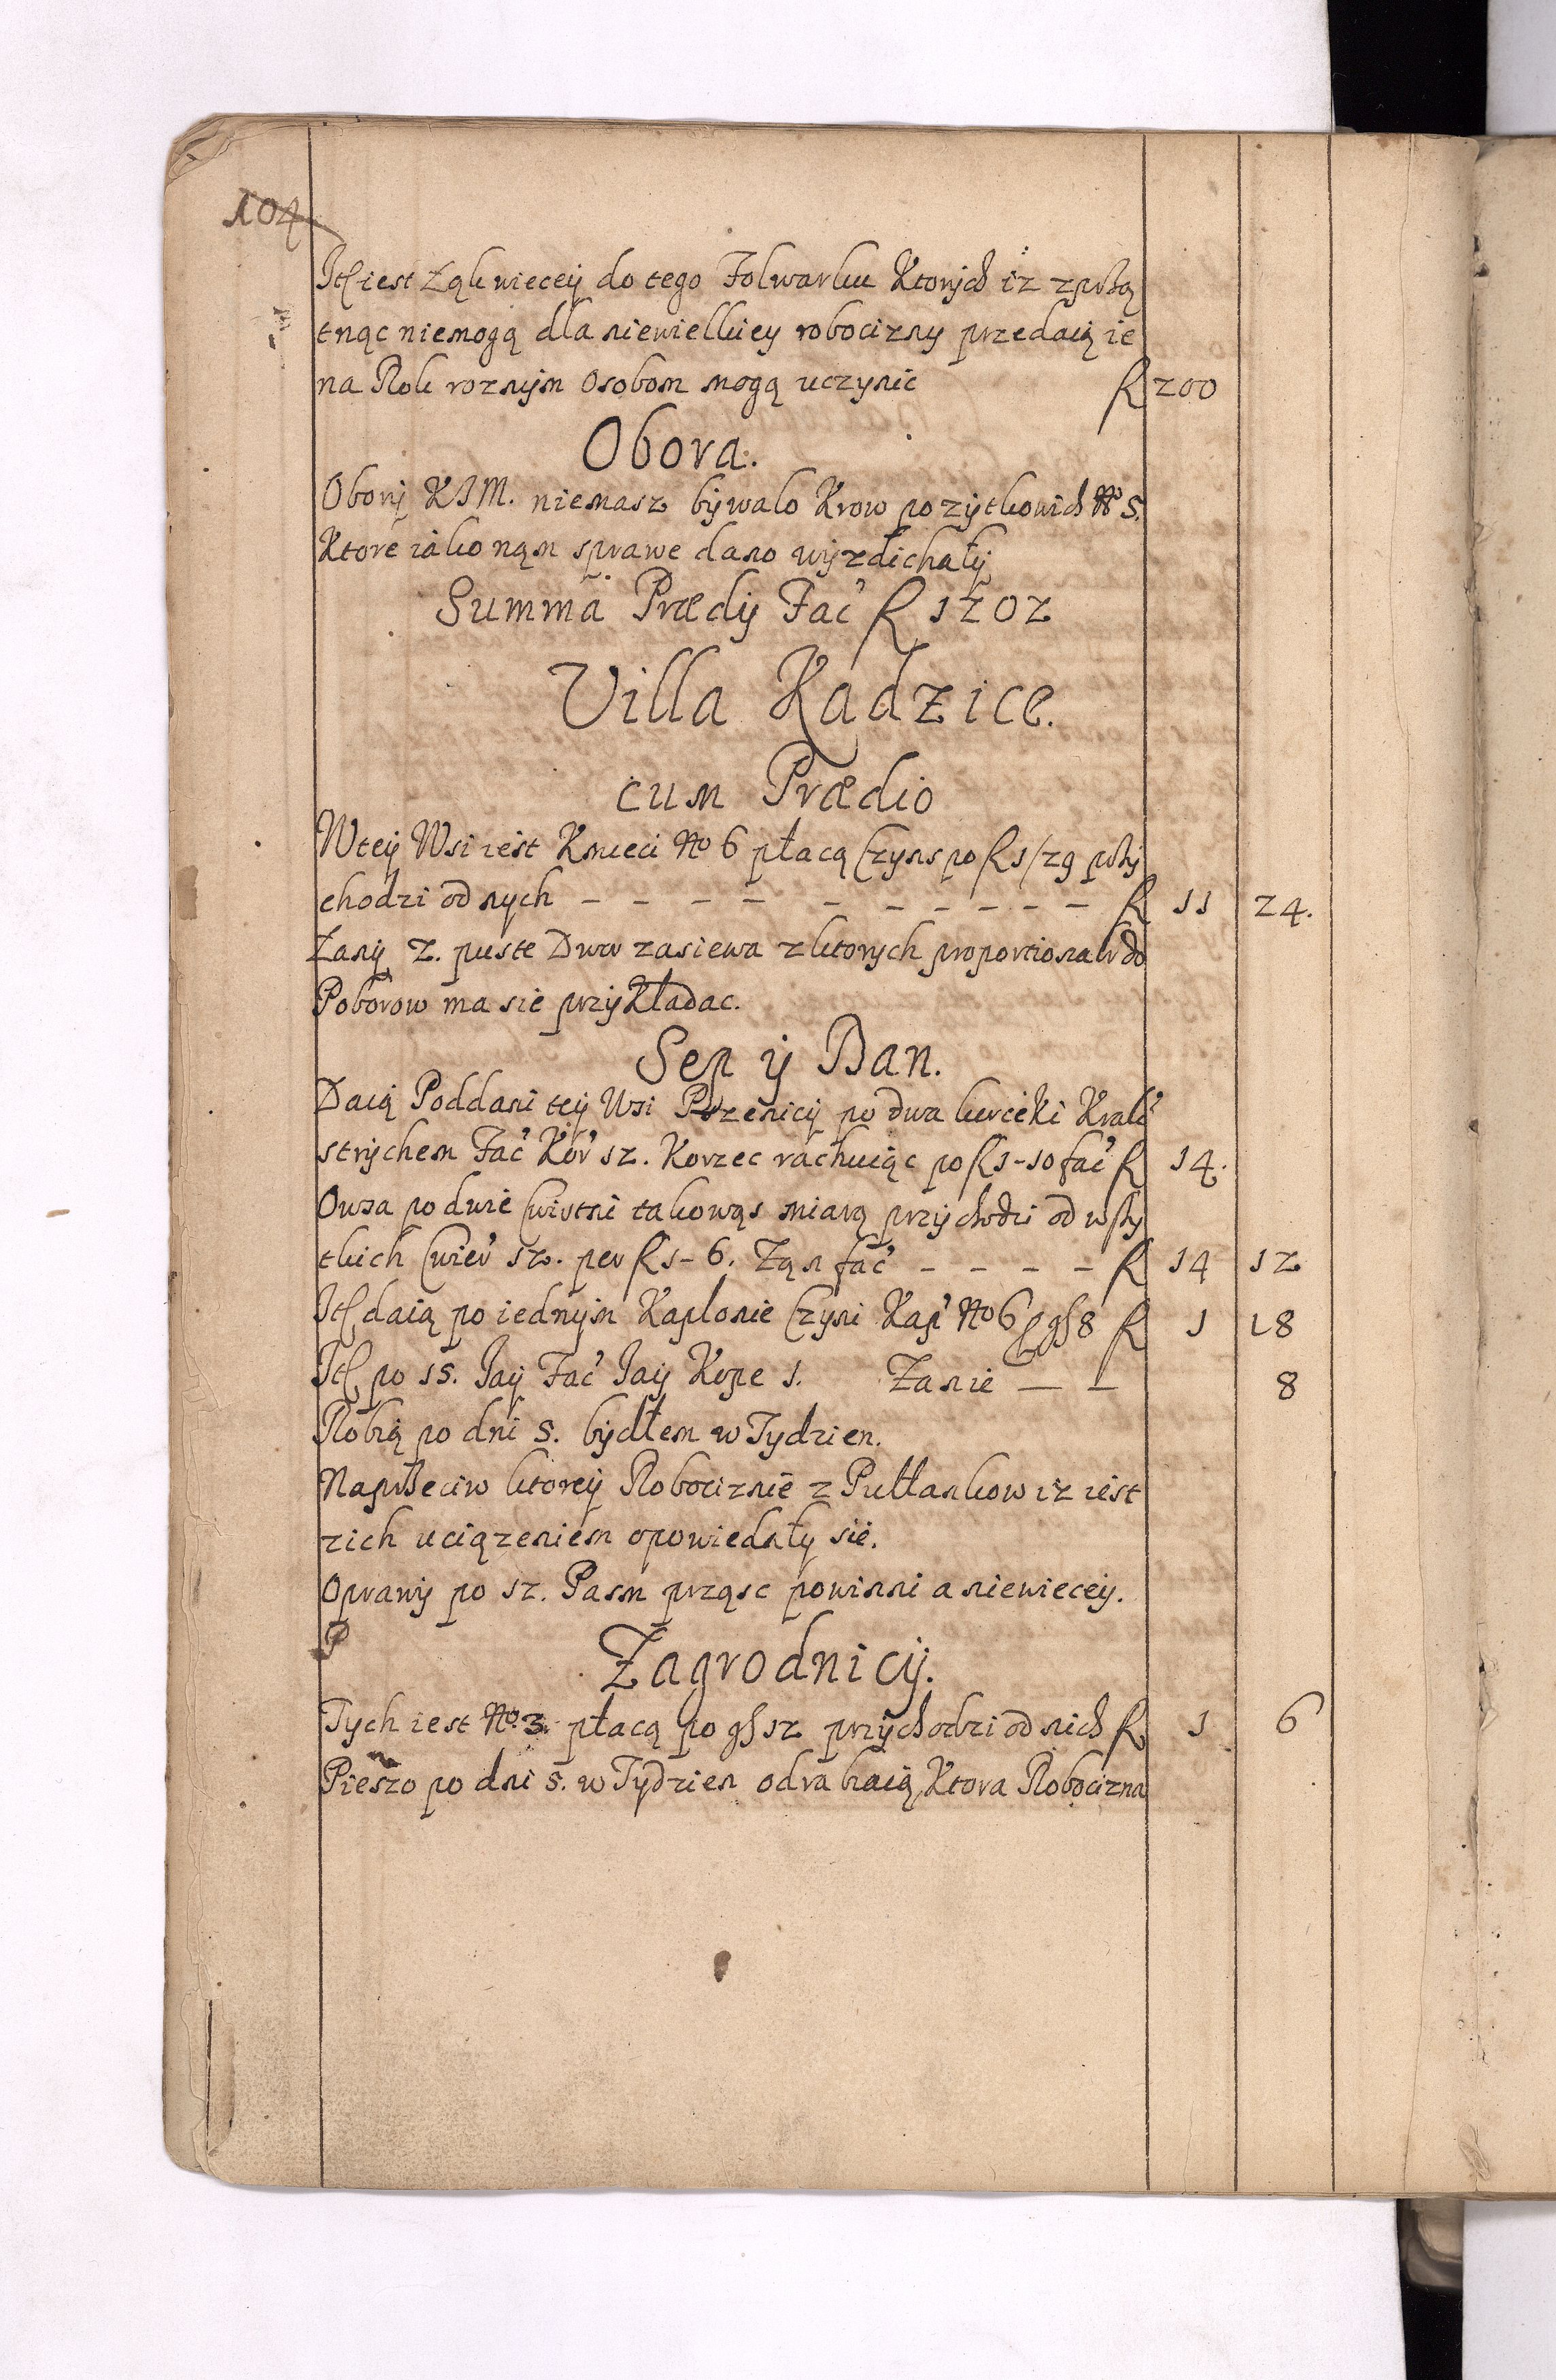 104
Jtħ iest Łąk wiecey do tego Folwarku Ktorych iz zprzą
tnąc niemogą dla niewielkiey robocizny przedaią ie
na Rok roznijm Osobom mogą uczynic R 200
Obora.
Oborij KJM. niemasz bijwalo Krow pozijtkowich No 5.
Ktore iako nąm sprawe dano wijzdichałij
Summa Prædij Fac R 1202
Villa Kadzice.
cum Prædio
Wteij Wsi iest Kmieci No 6 płacą Czijns po R 1/29 przij
chodzi od nych – – – – – – – – – – R 11 24.
Łanij 2. puste Dwor zasiewa z ktorych proportionalr do
Poborow ma sie przijkładac.
Sep ij Dan.
Daią Poddani teij Wsi Przenicij po dwa kurcieki Krak
strijchem Fac Kor 12. Korzec rachuiąc po R 1-10 fac R 14.
Owsa po dwie Cwirtni takowąs miarą przijchodzi od wszij
tkich Cwier 12. per R 1-6. Ząn fac – – – – R 14 12
Jtħ daią po iednijm Kaplonie Czijni Kap No 6 p gs 8 R 1 18
Jtħ po 15. Jaij Fac Jaij Kope 1. Zanie – – 8
Robią po dni 5. bijdłem w Tydzien.
Naprzeciw ktoreij Robociznie z Pułłankow iz iest
zich uciązeniem opowiedałij sie.
Oprawij po 12. Pasm prząsc powinni a niewieceij.
P
Zagrodnicij.
Tych iest No. 3. płacą po gs 12 przijchodzi od nich R 1 6
Pieszo po dni 5. w Tydzien odrabiaią, Ktora Robocizna